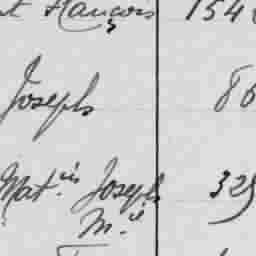 François 154
Joseph 86
Mat.is Joseph 329
M.el